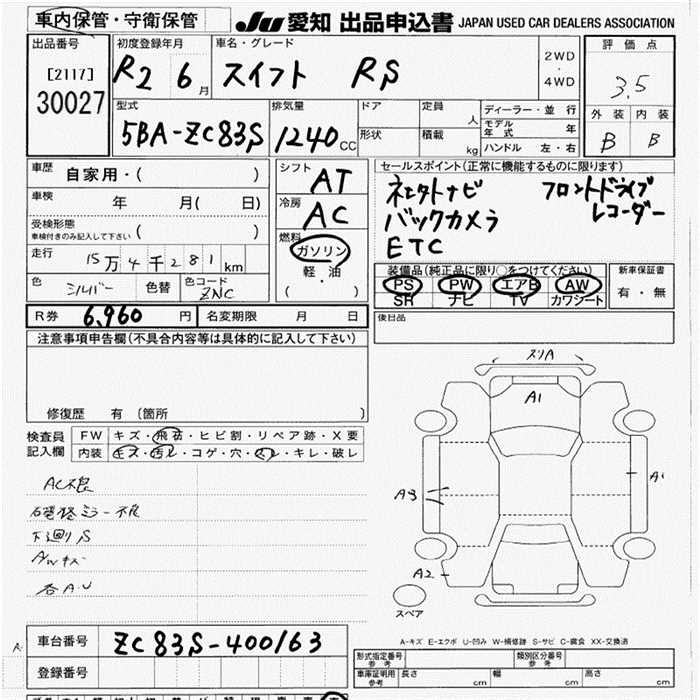 車内保管・守衛保管
JU 愛知 出品申込書 JAPAN USED CAR DEALERS ASSOCIATION
出品番号
[2117]
30027
初度登録年月
R2 6月
車名・グレード
スイフト RS
2WD
・
4WD
評価点
3.5
外装 内装
B B
型式
5BA-ZC83S
排気量
1240cc
ドア
形状
定員 人
積載 kg
ディーラー・並行
モデル年式 年
ハンドル 左・右
車歴 自家用・( )
車検 年 月( 日)
受検形態
車検付きのみ記入して下さい ( )
走行 15万4千281km
色 シルバー 色替 色コード ZNC
シフト AT
冷房 AC
燃料
ガソリン
・
軽・油
( )
セールスポイント(正常に機能するものに限ります)
ネェクトナビ フロントドライブ
バックカメラ レコーダー
ETC
装備品(純正品に限り○をつけてください)
PS PW エアB AW
SR ナビ TV カワシート
新車保証書
有・無
R券 6,960円 名変期限 月 日
後日品
注意事項申告欄(不具合内容等は具体的に記入して下さい)
修復歴 有 〔箇所 〕
検査員
記入欄
FW キズ・飛石・ヒビ割・リペア跡・X要
内装 キズ・汚レ・コゲ・穴・スレ・キレ・破レ
AC不良
下廻りS
AWキズ
各A・U
スリA
A1
A1
A3
A2
スペア
A-キズ E-エクボ U-凹み W-補修跡 S-サビ C-腐食 XX-交換済
車台番号 ZC83S-400163
登録番号
形式指定番号
参考
類別区分番号
参考
車庫証明用
参考
長さ cm 幅 cm 高さ cm